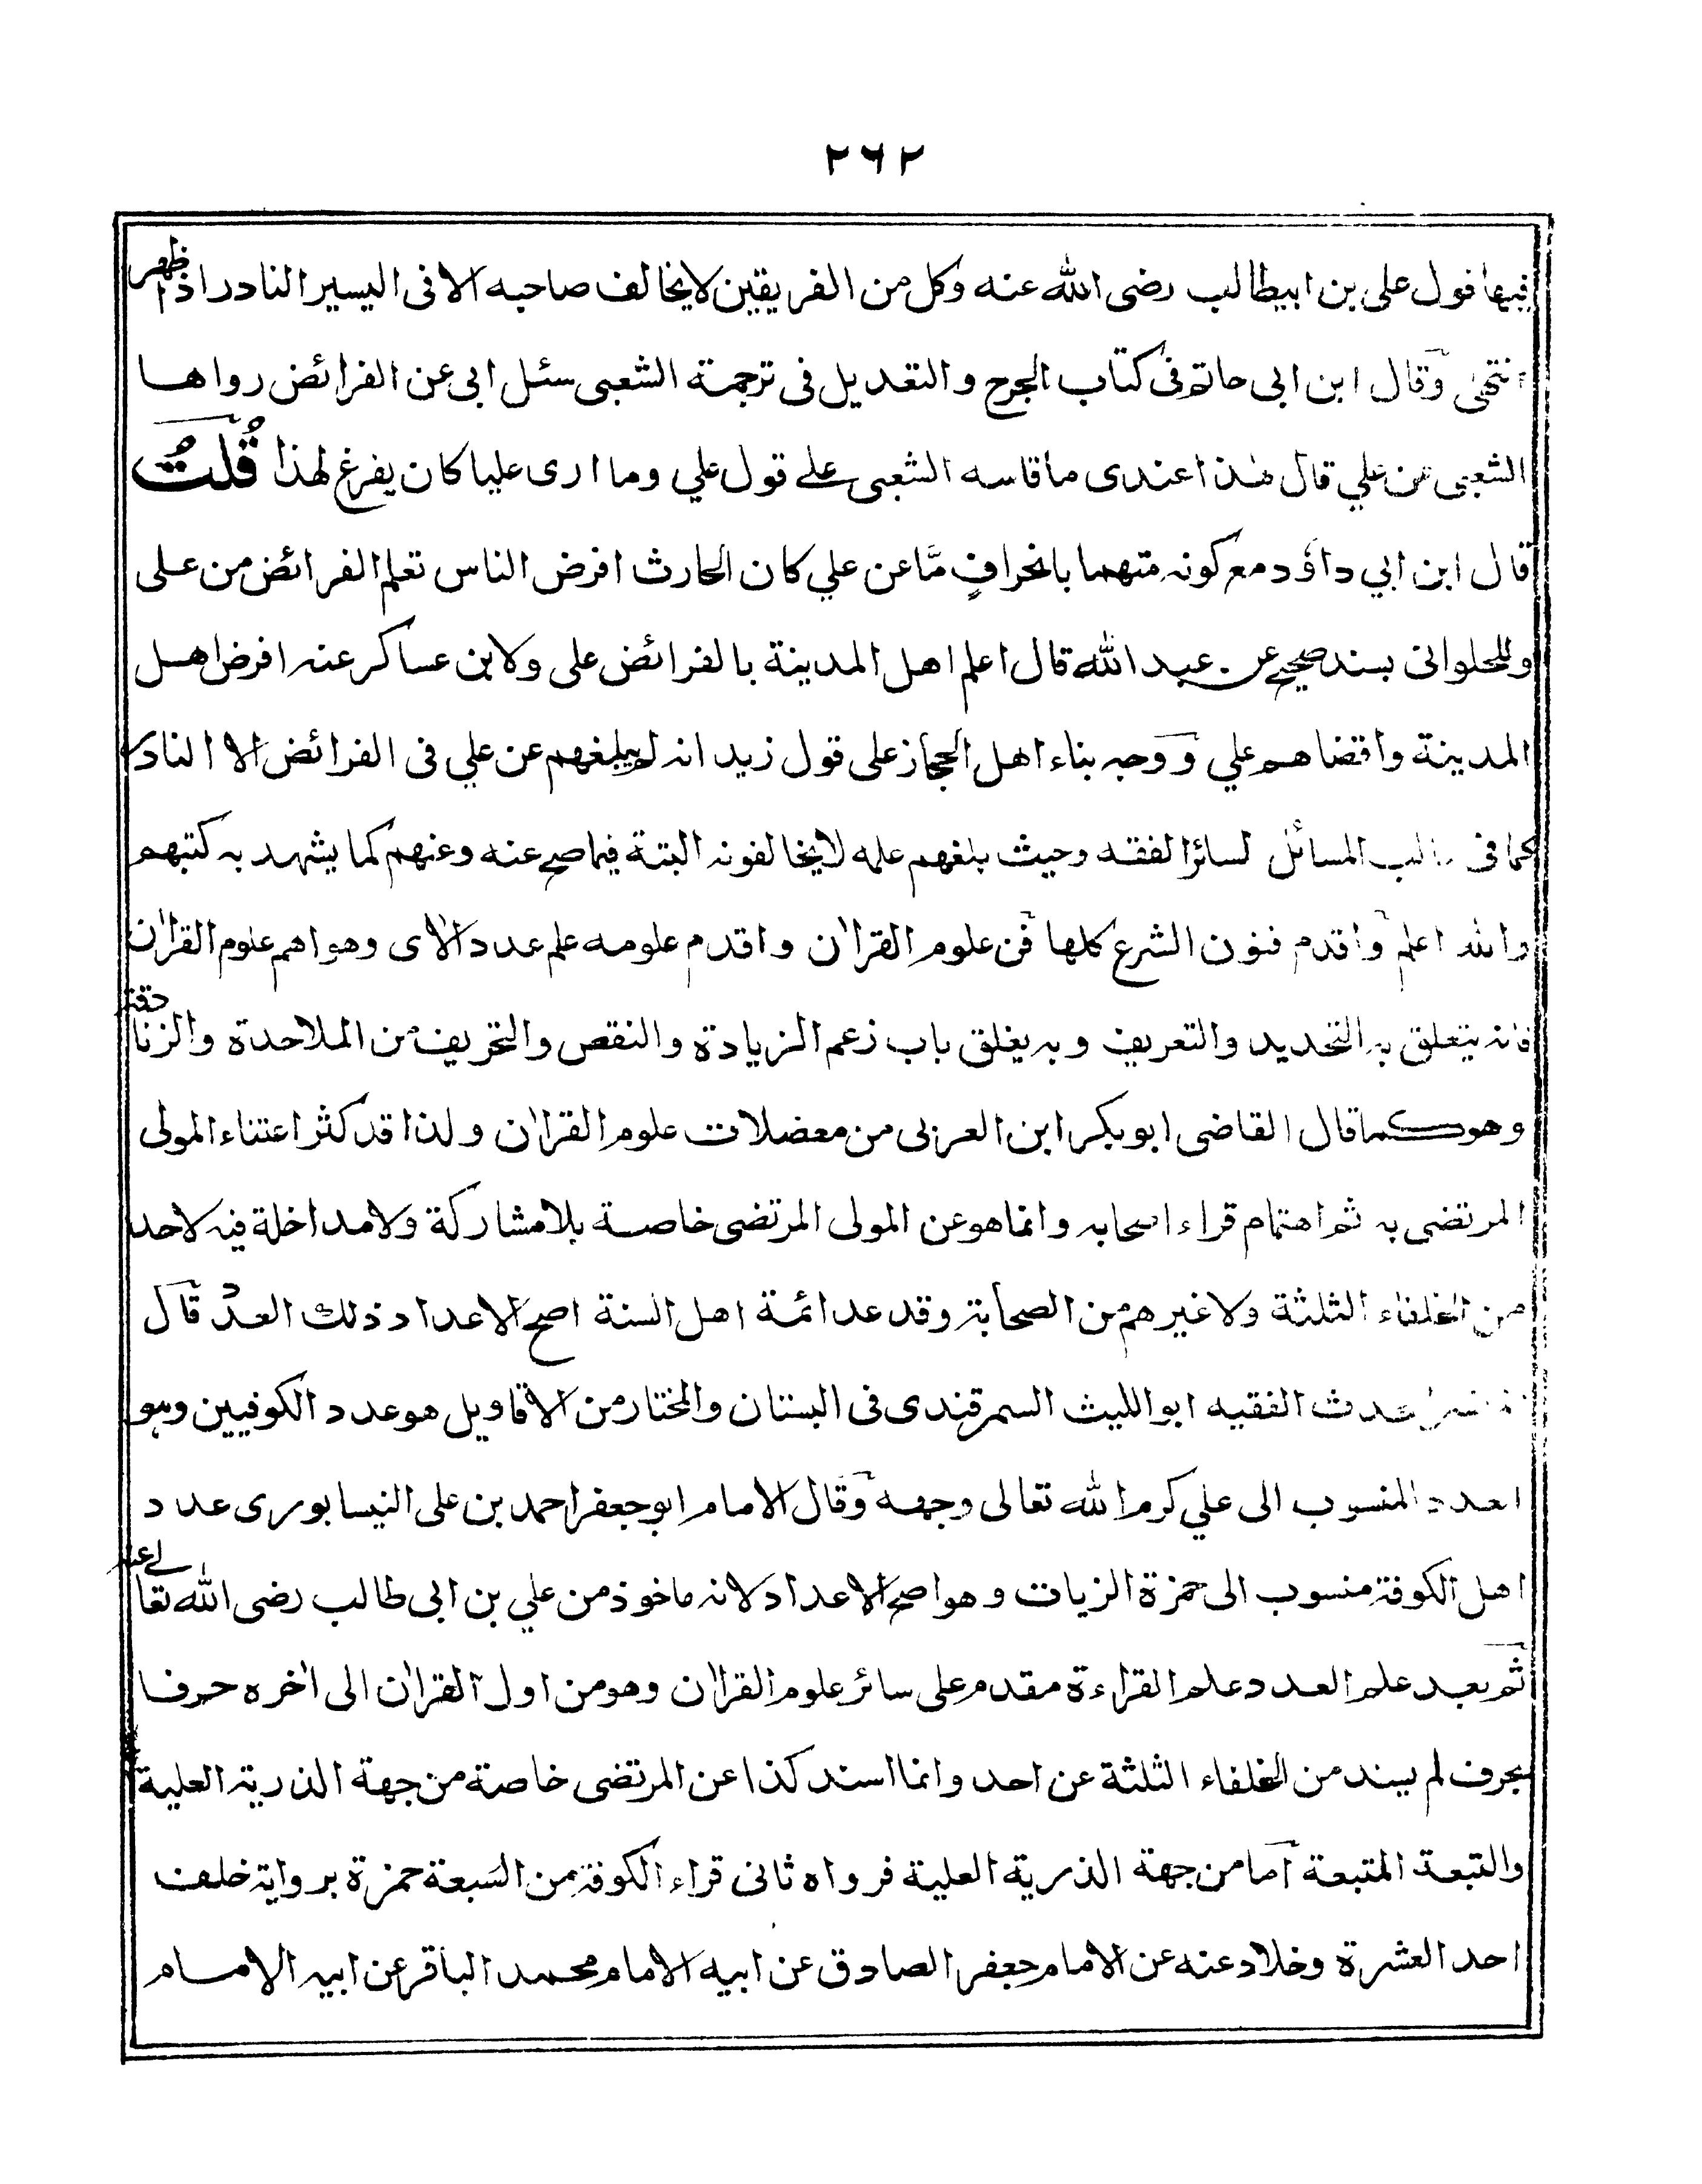 ٢٦٢
فيها قول على بن ابيطالب رضى الله عنه وكل من الفريقين لا يخالف صاحبه الا فى اليسير النادر اذا ظهر
انتهى وقال ابن ابى حاتم فى كتاب الجرح والتعديل فى ترجمة الشعبى سئل ابى عن الفرائض رواها
الشعبى عن علي قال هذا عندى ما قاسه الشعبى على قول علي وما ارى عليا كان يفرغ لهذا قُلتُ
قال ابن ابي داؤد مع كونه متهما بانحرافٍ مَّا عن علي كان الحارث افرض الناس تعلم الفرائض من على
وللحلوانى بسند صحيح عن عبد الله قال اعلم اهل المدينة بالفرائض على ولابن عساكر عنه افرض اهل
المدينة واقضاهم علي ووجه بناء اهل الحجاز على قول زيد انه لم يبلغهم عن علي فى الفرائض الا النادر
كما فى المسائل لسائر الفقه وحيث بلغهم علمه لا يخالفونه البتة فيما صح عنه وعنهم كما يشهد به كتبهم
والله اعلم واقدم فنون الشرع كلها فن علوم القراٰن واقدم علومه علم عدد الاٰى وهو اهم علوم القراٰن
فانه يتعلق به التحديد والتعريف وبه يغلق باب زعم الزيادة والنقص والتحريف من الملاحدة والزنادقة
وهو كما قال القاضى ابو بكر ابن العربى من معضلات علوم القراٰن ولذا قد كثر اعتناء المولى
المرتضى به ثم اهتمام قراء اصحابه وانما هو عن المولى المرتضى خاصة بلا مشاركة ولا مداخلة فيه لاحد
من الخلفاء الثلثة ولا غيرهم من الصحابة وقد عد ائمة اهل السنة اصح الاعداد ذلك العدد قال
الفقيه ابو الليث السمرقندى فى البستان والمختار من الاقاويل هو عدد الكوفيين وهو
العدد المنسوب الى علي كرم الله تعالى وجهه وقال الامام ابو جعفر احمد بن على النيسابورى عدد
اهل الكوفة منسوب الى حمزة الزيات وهو اصح الاعداد لانه ماخوذ من علي بن ابى طالب رضى الله تعالے عنه
ثم بعد علم العدد علم القراءة مقدم على سائر علوم القراٰن وهو من اول القراٰن الى اٰخره حرفا
بحرف لم يسند من الخلفاء الثلثة عن احد وانما اسند كذا عن المرتضى خاصة من جهة الذرية العلية
والتبعة المتبعة اما من جهة الذرية العلية فرواه ثانى قراء الكوفة من السبعة حمزة برواية خلف
احد العشرة وخلاد عنه عن الامام جعفر الصادق عن ابيه الامام محمد الباقر عن ابيه الامام